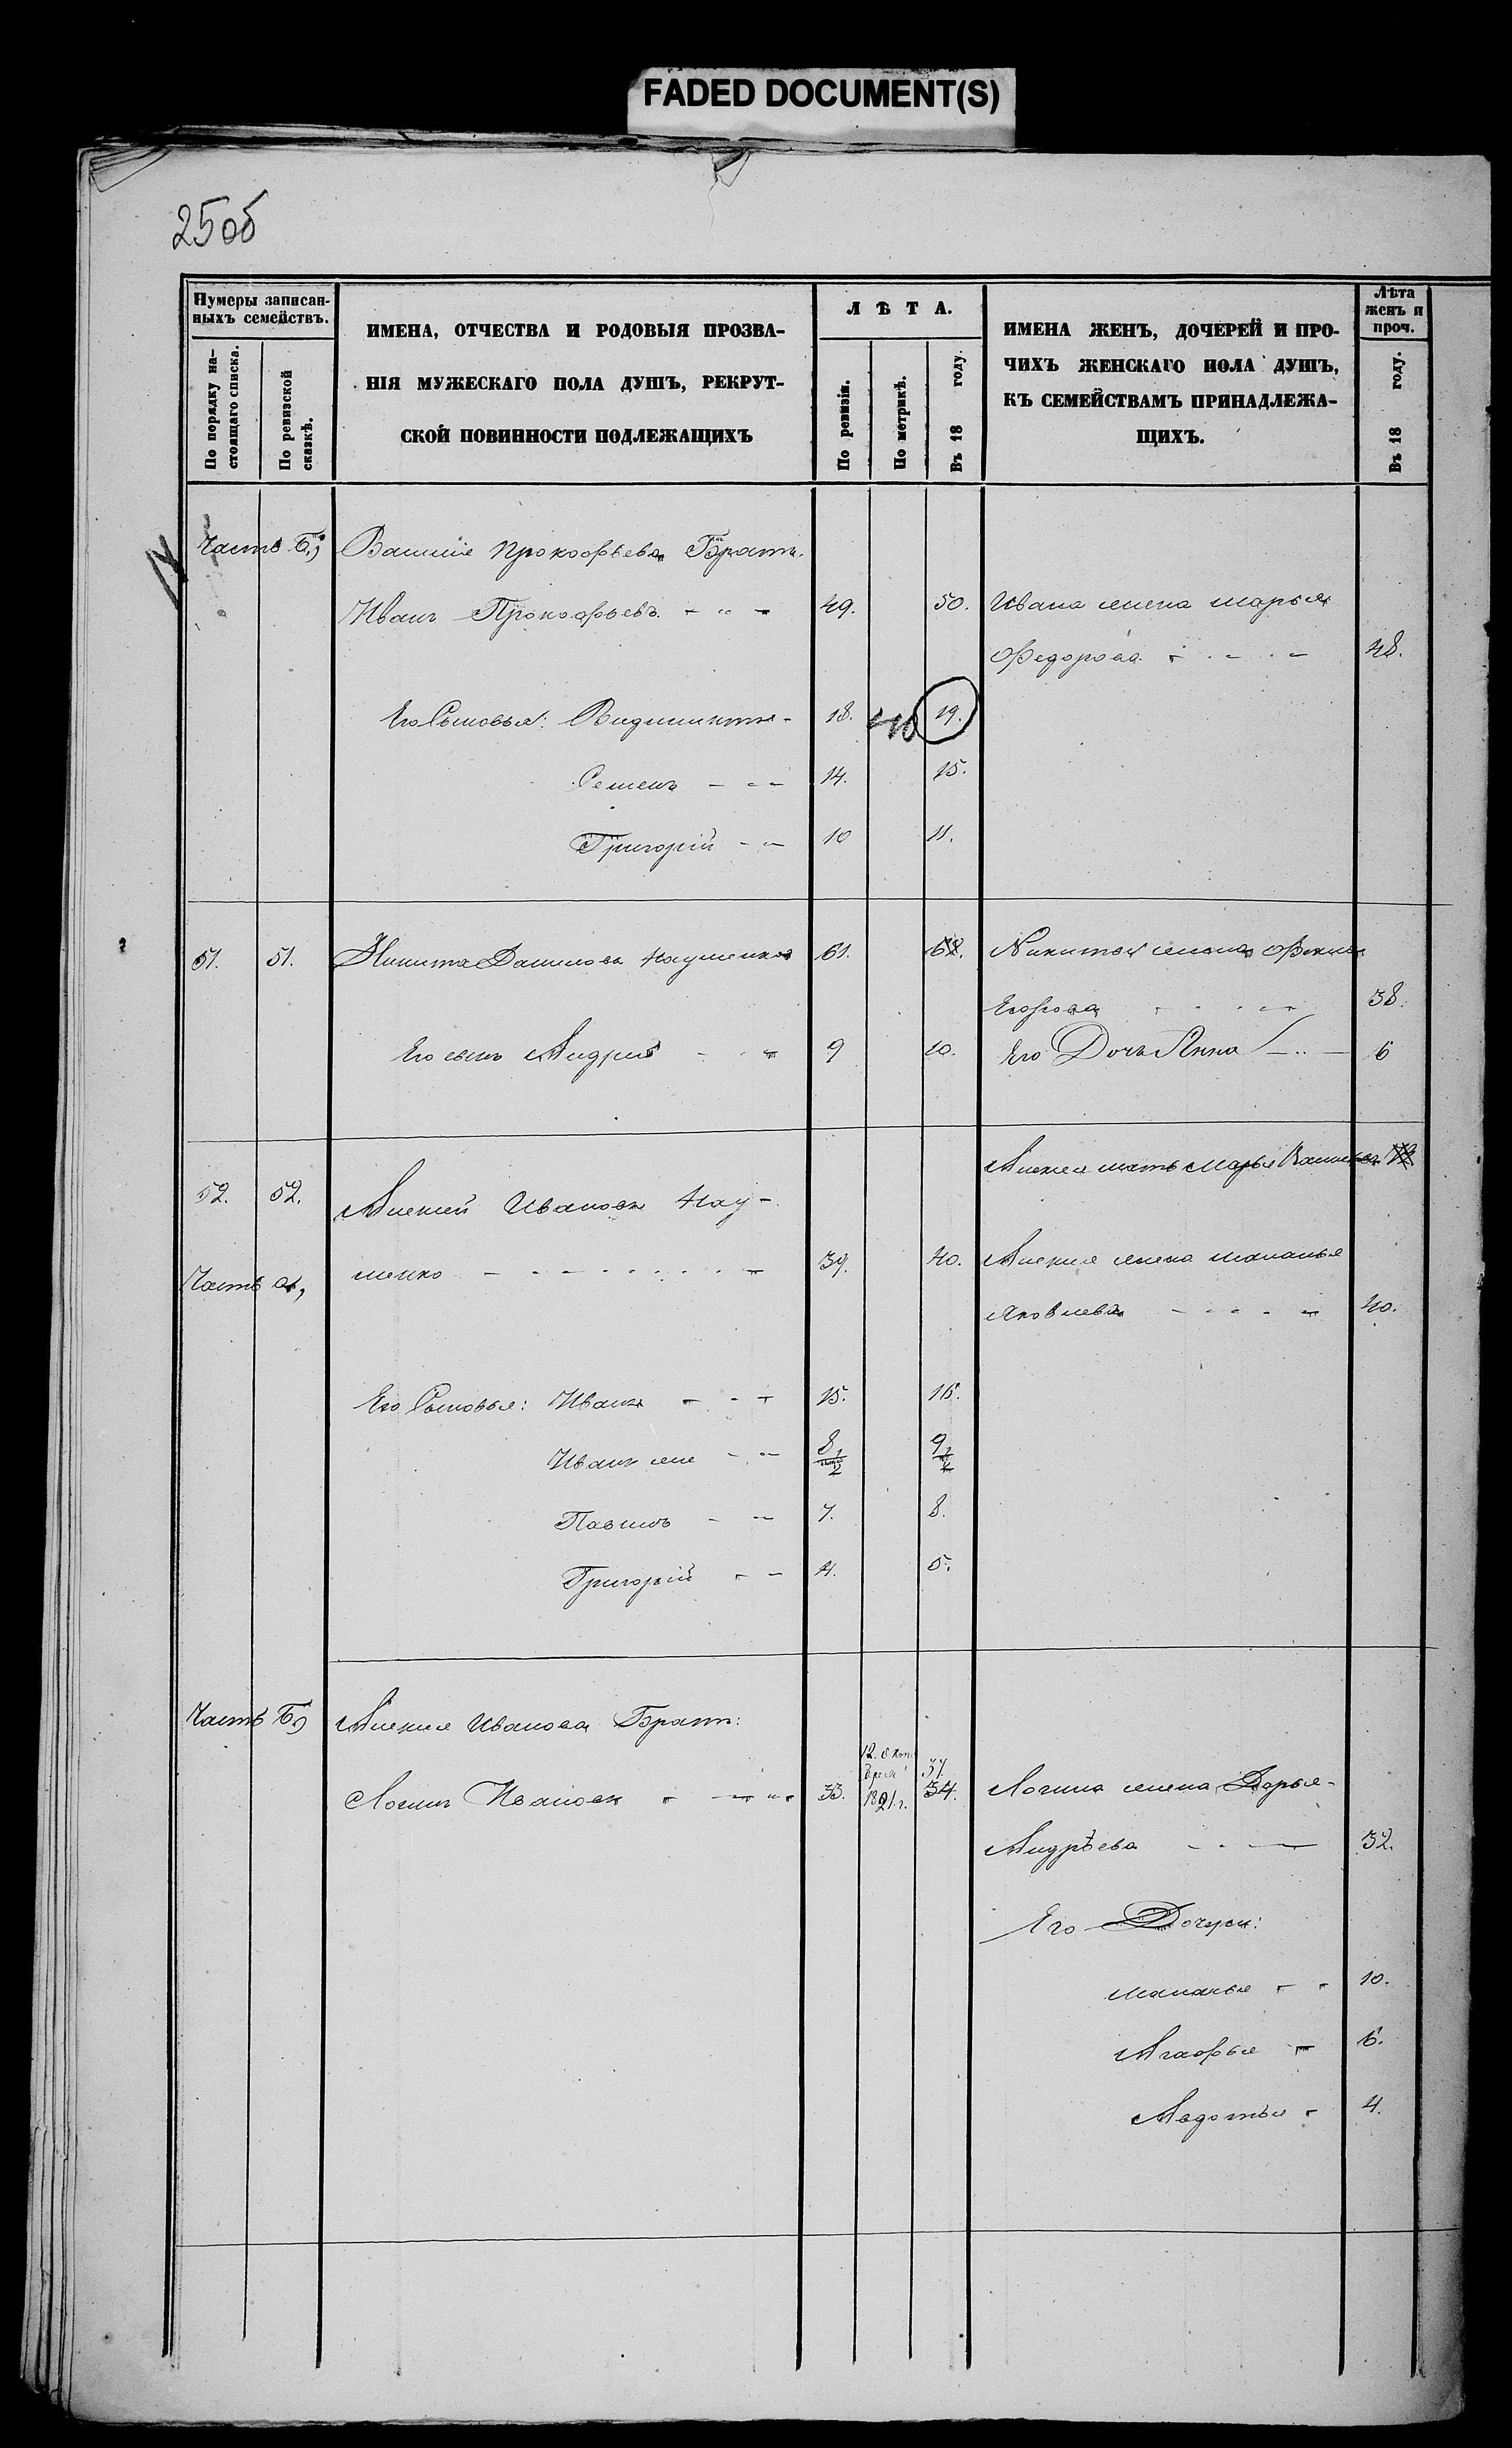 FADED DOCUMENT(S)
25об
Нумеры записан-
ныхъ семействъ.
По порядку на-
стоящаго списка.
По ревизской
сказкѣ.
ИМЕНА, ОТЧЕСТВА И РОДОВЫЯ ПРОЗВА-
НІЯ МУЖЕСКАГО ПОЛА ДУШЪ, РЕКРУТ-
СКОЙ ПОВИННОСТИ ПОДЛЕЖАЩИХЪ
ЛѢТА.
По ревизіи.
По метрикѣ.
Въ 18 году.
ИМЕНА ЖЕНЪ, ДОЧЕРЕЙ И ПРО-
ЧИХЪ ЖЕНСКАГО ПОЛА ДУШЪ,
КЪ СЕМЕЙСТВАМЪ ПРИНАДЛЕЖА-
ЩИХЪ.
Лѣта
женъ и
проч.
Въ 18 году.
Часть Б, Василія Прокофьева Братъ.
Иванъ Прокофьевъ 49. 50. Ивана жена Марья
Федорова 48.
Его Сыновья: 18. 19.
Семенъ 14. 15.
Григорій 10 11.
51. 51. Никита Даниловъ Науменко 61. Никиты жена Фекла
Егорова 38.
Его сынъ Андрей 9 10. Его Дочь Анна 6
Алексея мать Марья
52. 52. Алексей Ивановъ Нау-
Часть а, менко 39. 40. Алексея жена Маланья
Яковлева 40.
Его Сыновья: Иванъ 15. 16.
Иванъ же 8 1/2 9 1/2
Павелъ 7. 8.
Григорій 4. 5.
Часть Б, Алексея Иванова Братъ:
Логинъ Ивановъ 33. 12. Октя
бря 1821 г. 37. 34. Логина жена Дарья
Андрѣева 32.
Его Дочери:
Маланья 10.
Агафья 6.
Авдотья 4.